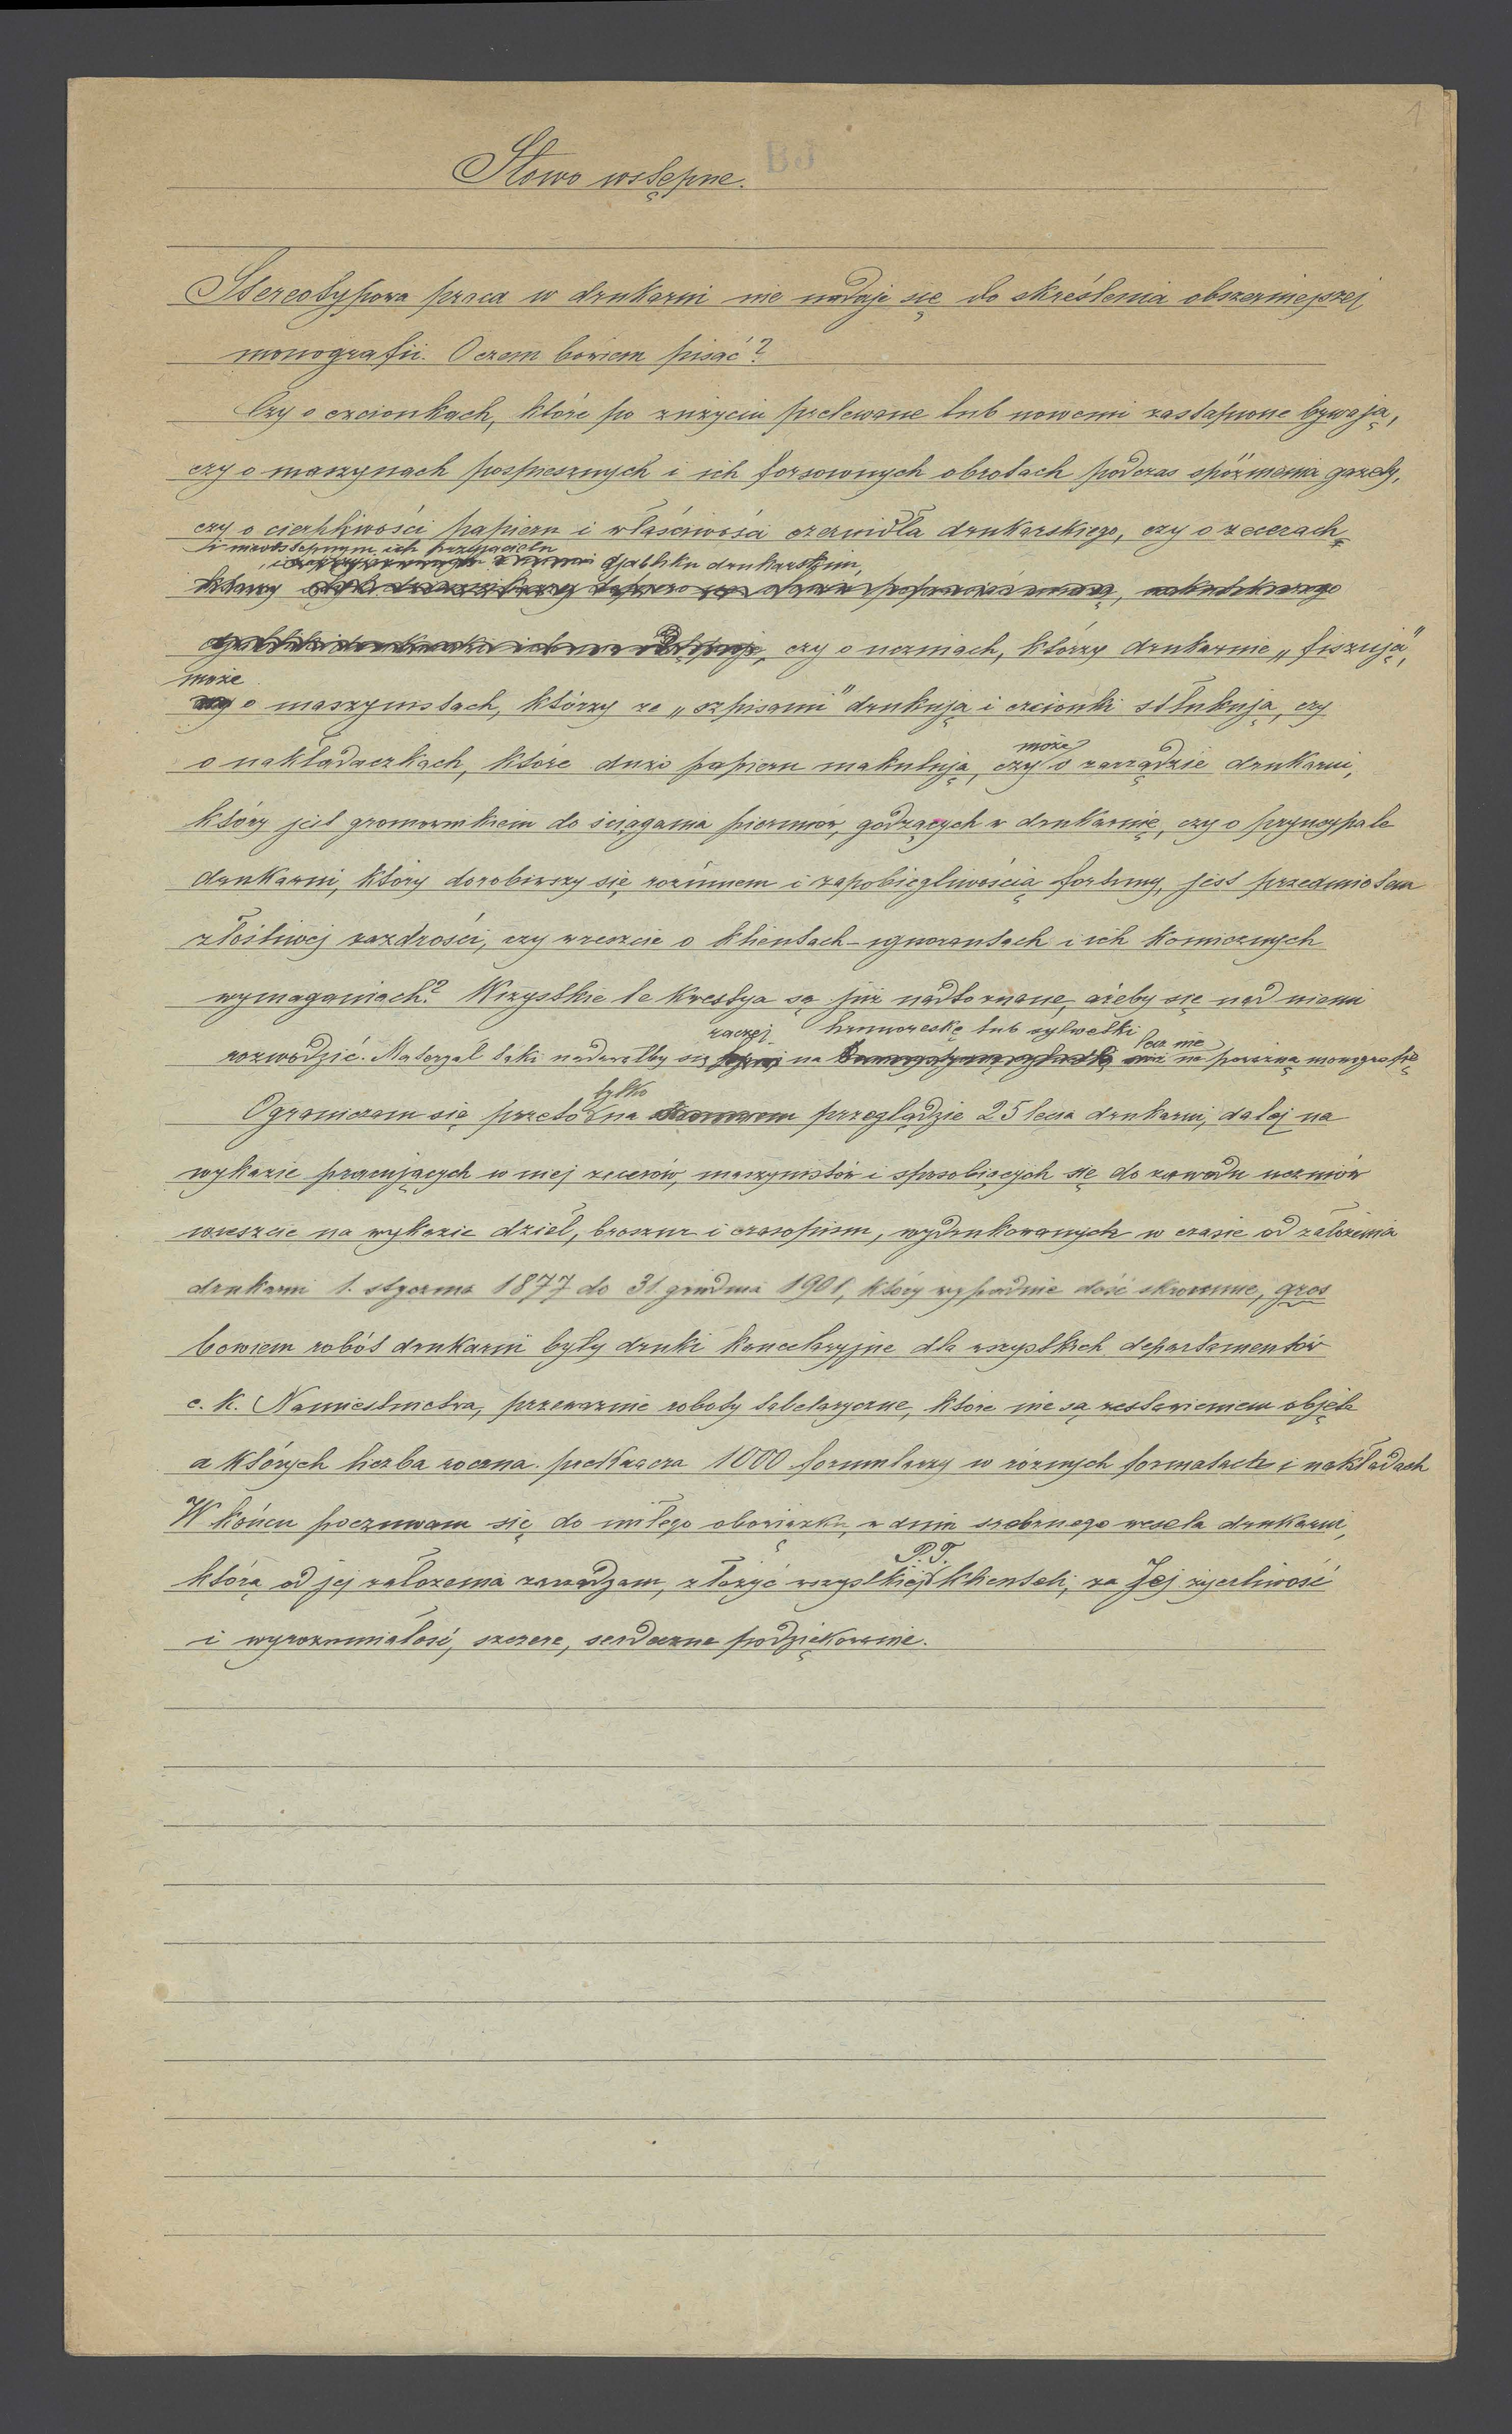 1
BJ
Słowo wstępne.
Stereotypowa praca w drukarni nie nadaje się do skreślenia obszerniejszej
monografii. O czem bowiem pisać?
Czy o czcionkach, które po zużyciu przelewane lub nowemi zastąpione bywają,
czy o maszynach pospiesznych i ich forsownych obrotach podczas spóźnienia gazety,
czy o cierpliwości papieru i właściwości czernidła drukarskiego, czy o zecerach
i nieodstępnym ich przyjacielu
djabliku drukarskim,
czy o uczniach, którzy drukarnie „fiszują",
może
o maszynistach, którzy ze „szpisami" drukują i czcionki stłukują, czy
może
o nakładaczkach, które dużo papieru makulują, czy o zarządzie drukarni,
który jest gromownikiem do ściągania piorunów, godzących w drukarnię, czy o pryncypale
drukarni, który dorobiwszy się rozumem i zapobiegliwością fortuny, jest przedmiotem
złośliwej zazdrości, czy wreszcie o klientach-ignorantach i ich komicznych
wymaganiach? Wszystkie te kwestya są już nadto znane, ażeby się nad niemi
raczej humoreskę lub sylwetki lecz nie
rozwodzić. Materyał taki nadawałby się na na poważną monografię
tylko
Ograniczam się przeto na przeglądzie 25 lecia drukarni, dalej na
wykazie pracujących w niej zecerów, maszynistów i sposobiących się do zawodu uczniów
wreszcie na wykazie dzieł, broszur i czasopism, wydrukowanych w czasie od założenia
drukarni 1. stycznia 1877 do 31. grudnia 1901, który wypadnie dość skromnie, gros
bowiem robót drukarni były druki kancelaryjne dla wszystkich departamentów
c. k. Namiestnictwa, przeważnie roboty tabelaryczne, które nie są zestawieniem objęte
a których liczba roczna przekracza 1000 formularzy w różnych formatach i nakładach
W końcu poczuwam się do miłego obowiązku, w dniu srebrnego wesela drukarni,
P. T.
którą od jej założenia zarządzam, złożyć wszystkiej klienteli, za Jej życzliwość
i wyrozumiałość, szczere, serdeczne podziękowanie.